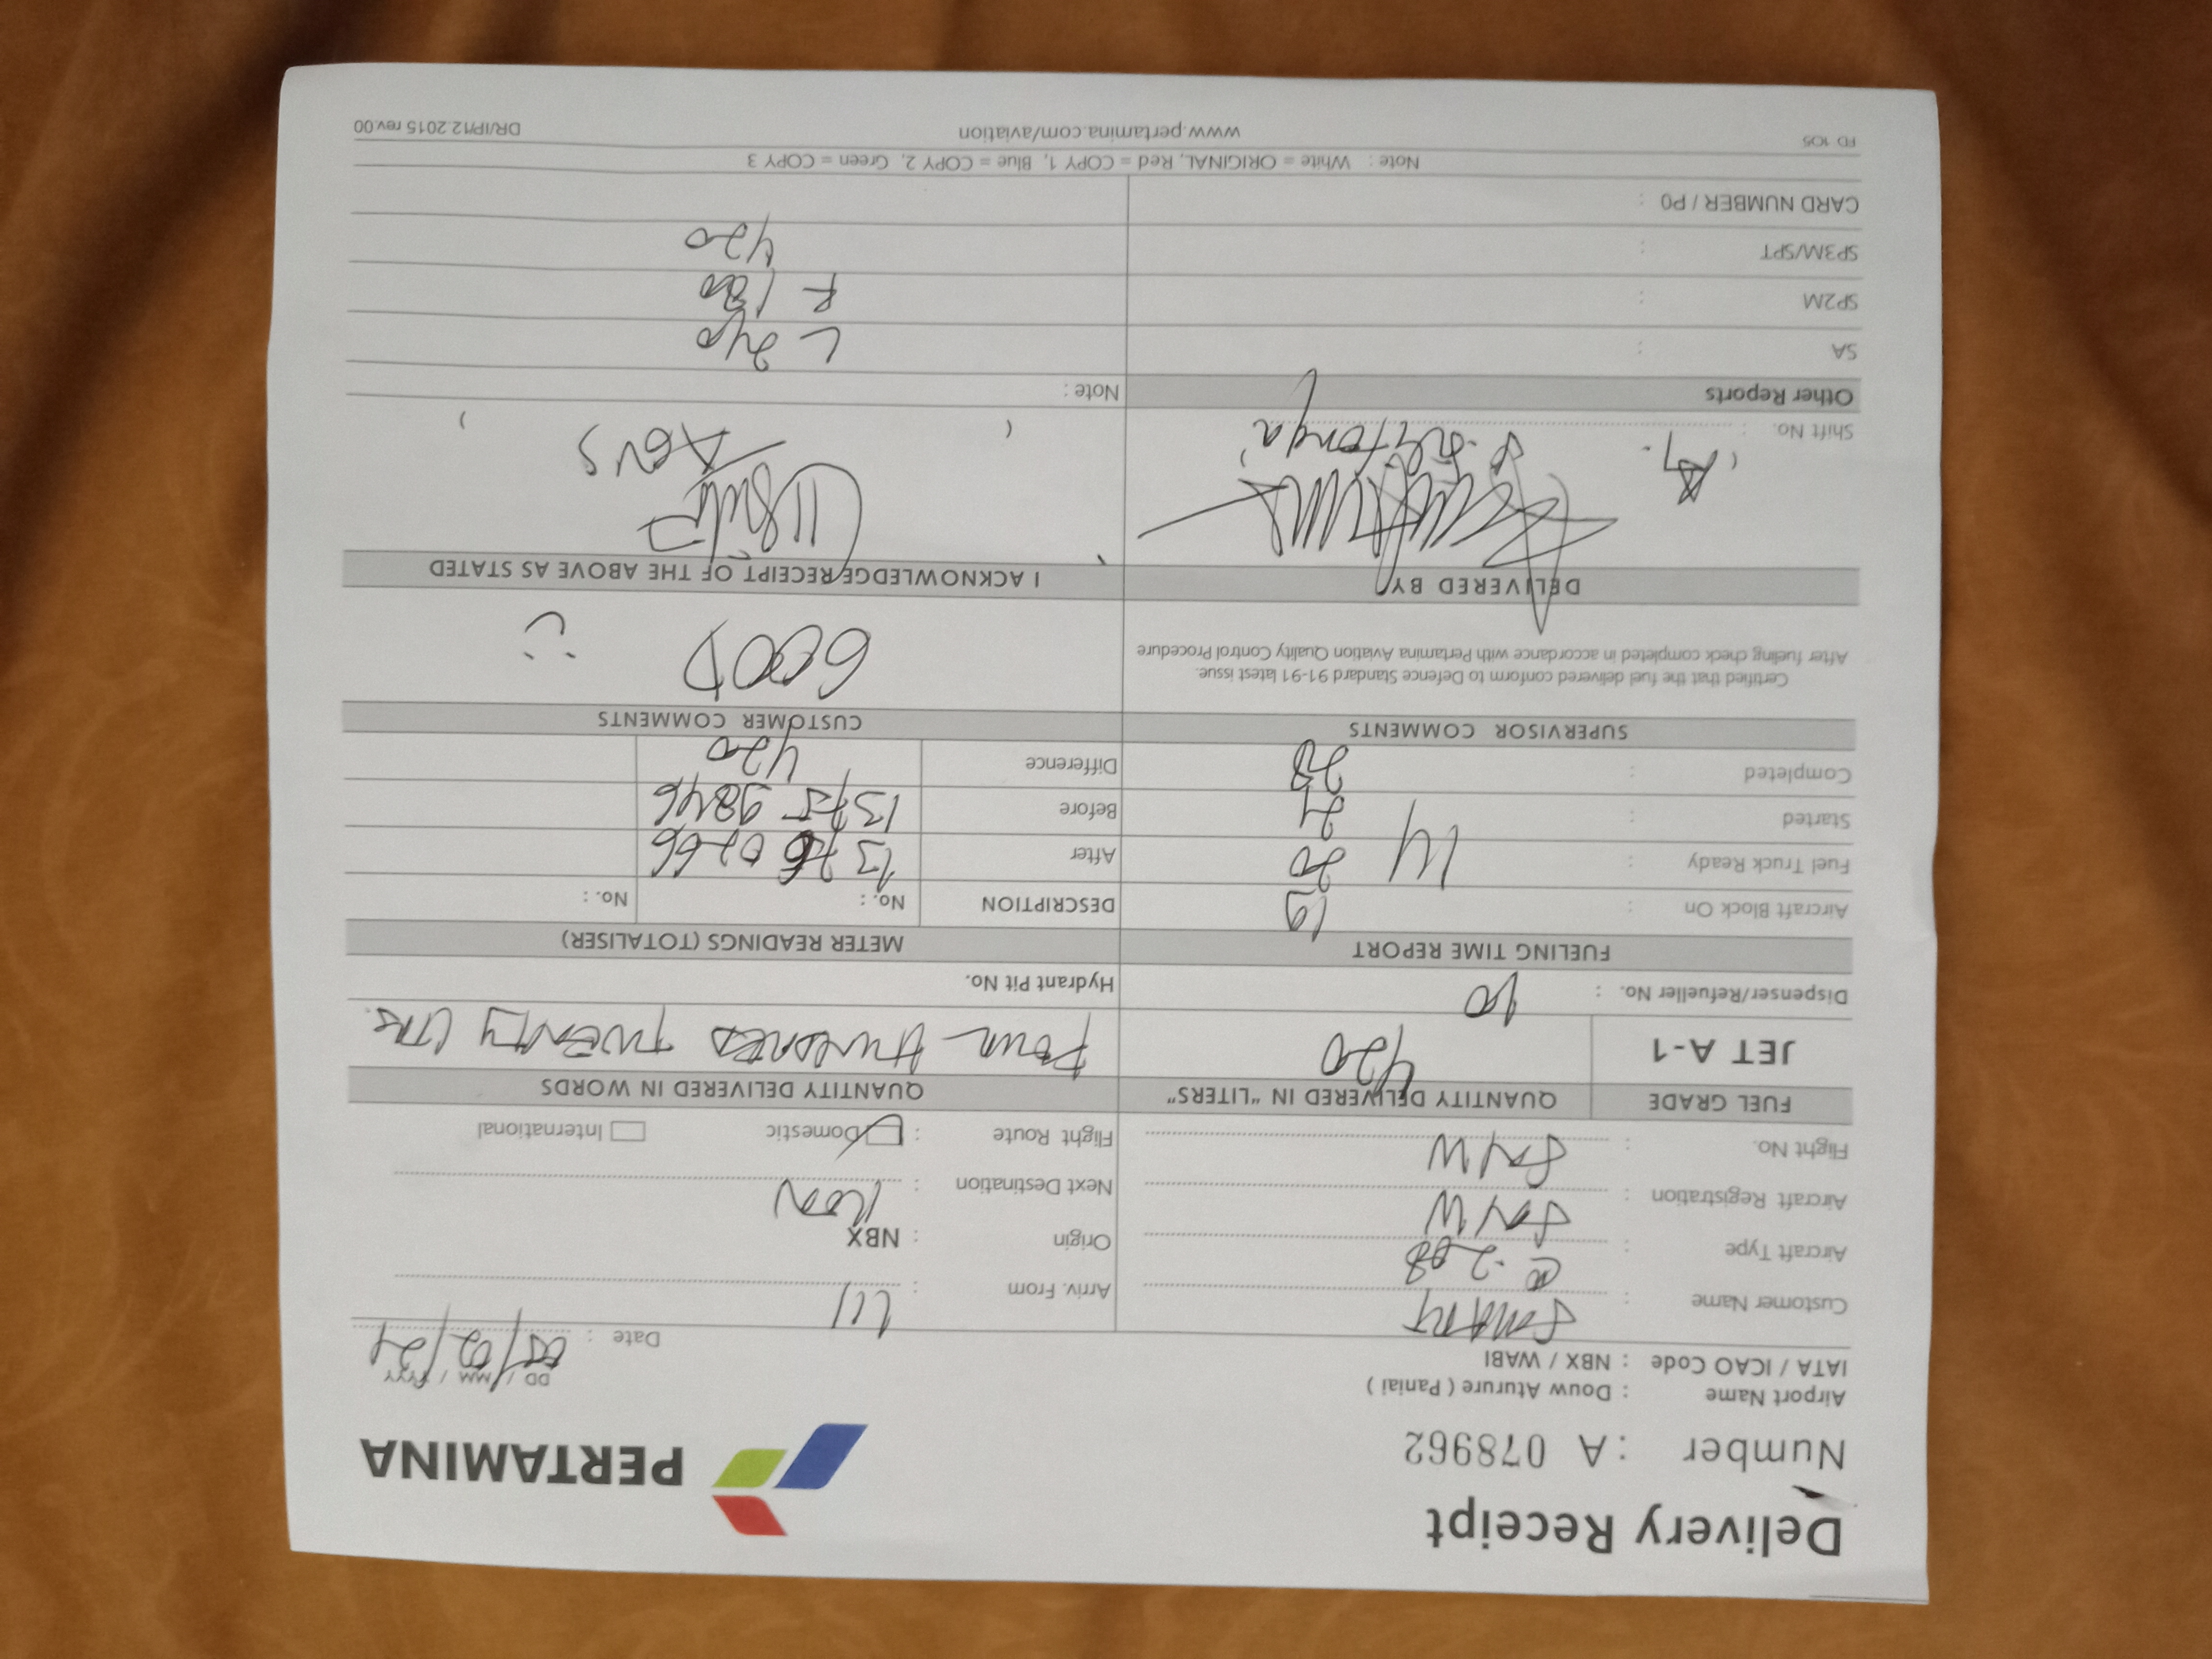 Delivery Receipt
PERTAMINA
Number : A 078962
Airport Name : Douw Aturure ( Paniai )
IATA / ICAO Code : NBX / WABI
DD / MM / YYYY
Date : 05/02/24
Customer Name : SMART
Arriv. From :
Aircraft Type : C-208
Origin : NBX
Aircraft Registration : SNW
Next Destination :
Flight No. : SNW
Flight Route : Domestic International
FUEL GRADE QUANTITY DELIVERED IN "LITERS" QUANTITY DELIVERED IN WORDS
JET A-1 420 FOUR HUNDRED TWENTY LTRS.
Dispenser/Refueller No. : 10 Hydrant Pit No.
FUELING TIME REPORT METER READINGS (TOTALISER)
Aircraft Block On : 19 DESCRIPTION No. : No. :
Fuel Truck Ready : 14 20 After 1376 0266
Started : 21 Before 1375 9846
Completed : 28 Difference 420
SUPERVISOR COMMENTS CUSTOMER COMMENTS
Certified that the fuel delivered conform to Defence Standard 91-91 latest issue.
After fueling check completed in accordance with Pertamina Aviation Quality Control Procedure
GOOD :)
DELIVERED BY I ACKNOWLEDGE RECEIPT OF THE ABOVE AS STATED
AGUS
Shift No. : ( )
Other Reports Note :
SA : L 240
SP2M : R 180
SP3M/SPT : 420
CARD NUMBER / PO :
Note : White = ORIGINAL, Red = COPY 1, Blue = COPY 2, Green = COPY 3
FD 105 www.pertamina.com/aviation DR/IP/12.2015 rev.00